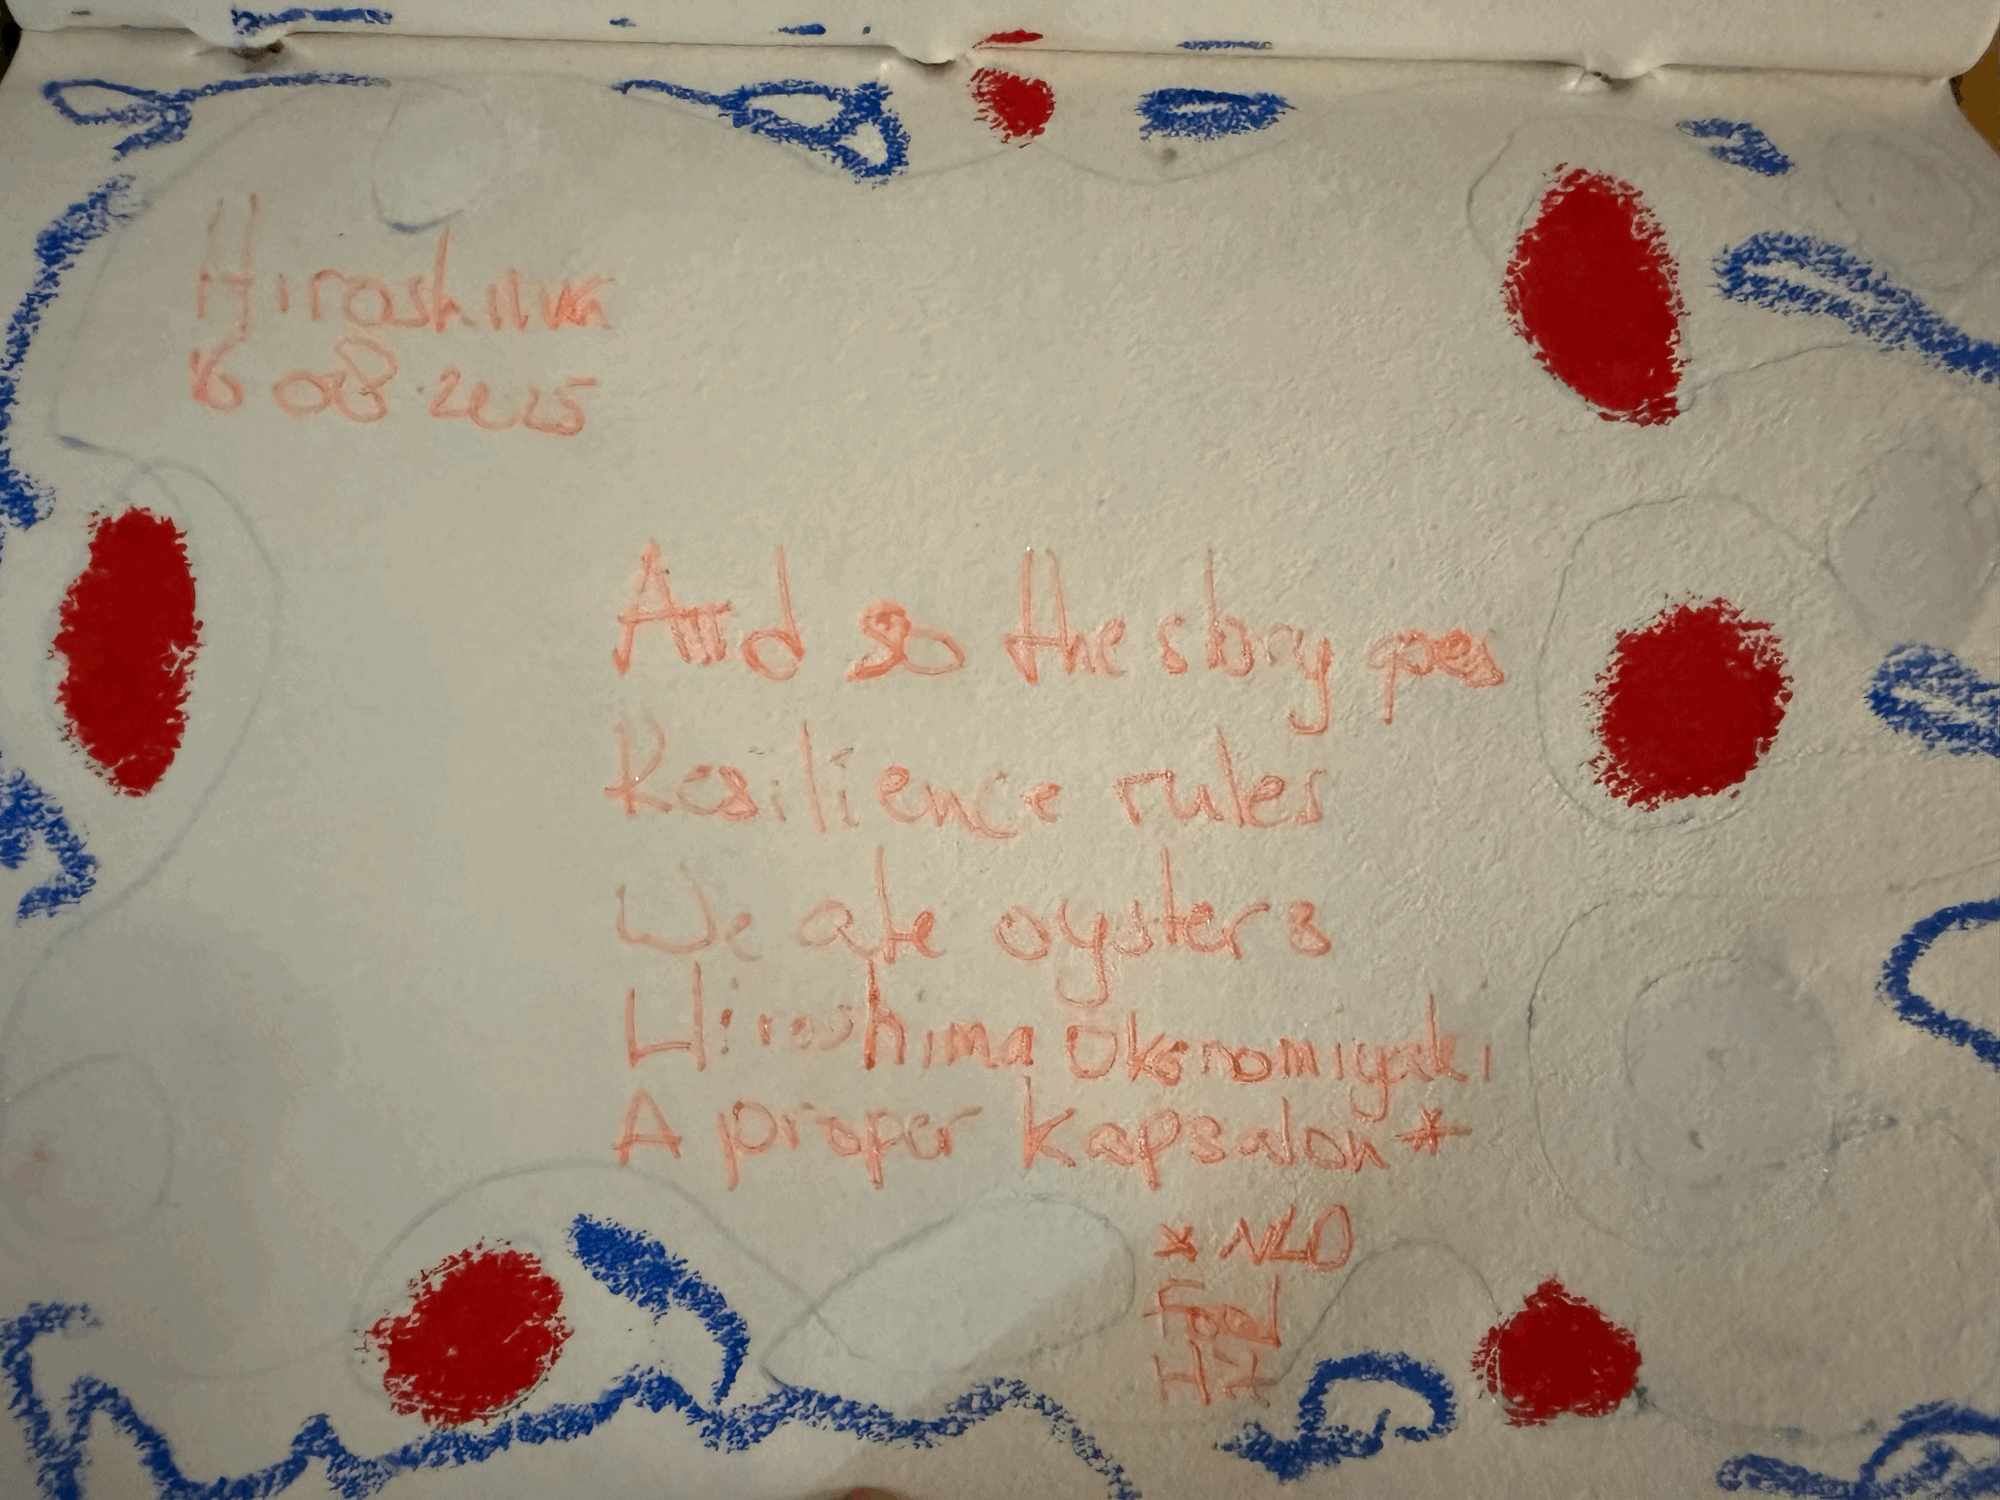 Hiroshima
16 08.2025
And so the story goes
Resilience rules
We ate oysters
Hiroshima Okonomiyaki
A proper kapsalon*
* NLD
Food